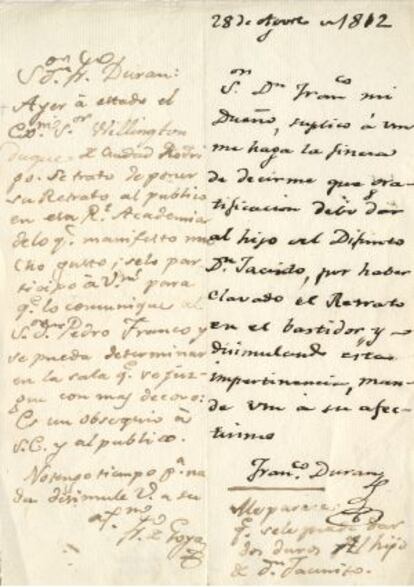 Sor Dn Fr. Duran:
Ayer à estado el
Exmo Sor Wellington
Duque de Ciudad Rodri
go. Se trato de poner
su Retrato al publico
en esa Rl Academia
de lo q.e manifesto mu
cho gusto; se lo par
ticipo à Vm para
q.e lo comunique al
Sor Dn Pedro Franco y
se pueda determinar
en la sala q.e se juz-
gue con mas decoro:
Es un obsequio à
S.E. y al publico.
No tengo tiempo pa na
da disimule V. a su
af.mo
Fr. de Goya
28 de Agosto de 1812
Sor Dn Franco mi
Dueño, suplico à Vm
me haga la fineza
de decirme que gra-
tificacion debo dar
al hijo del Difunto
Dn Jacinto, por haber
clavado el Retrato
en el bastidor, y
disimulando esta
impertinencia, man-
de Vm à su afec-
tisimo
Franco Duran
Me parece
q.e se le puede dar
dos duros al hijo
de Dn Jacinto.